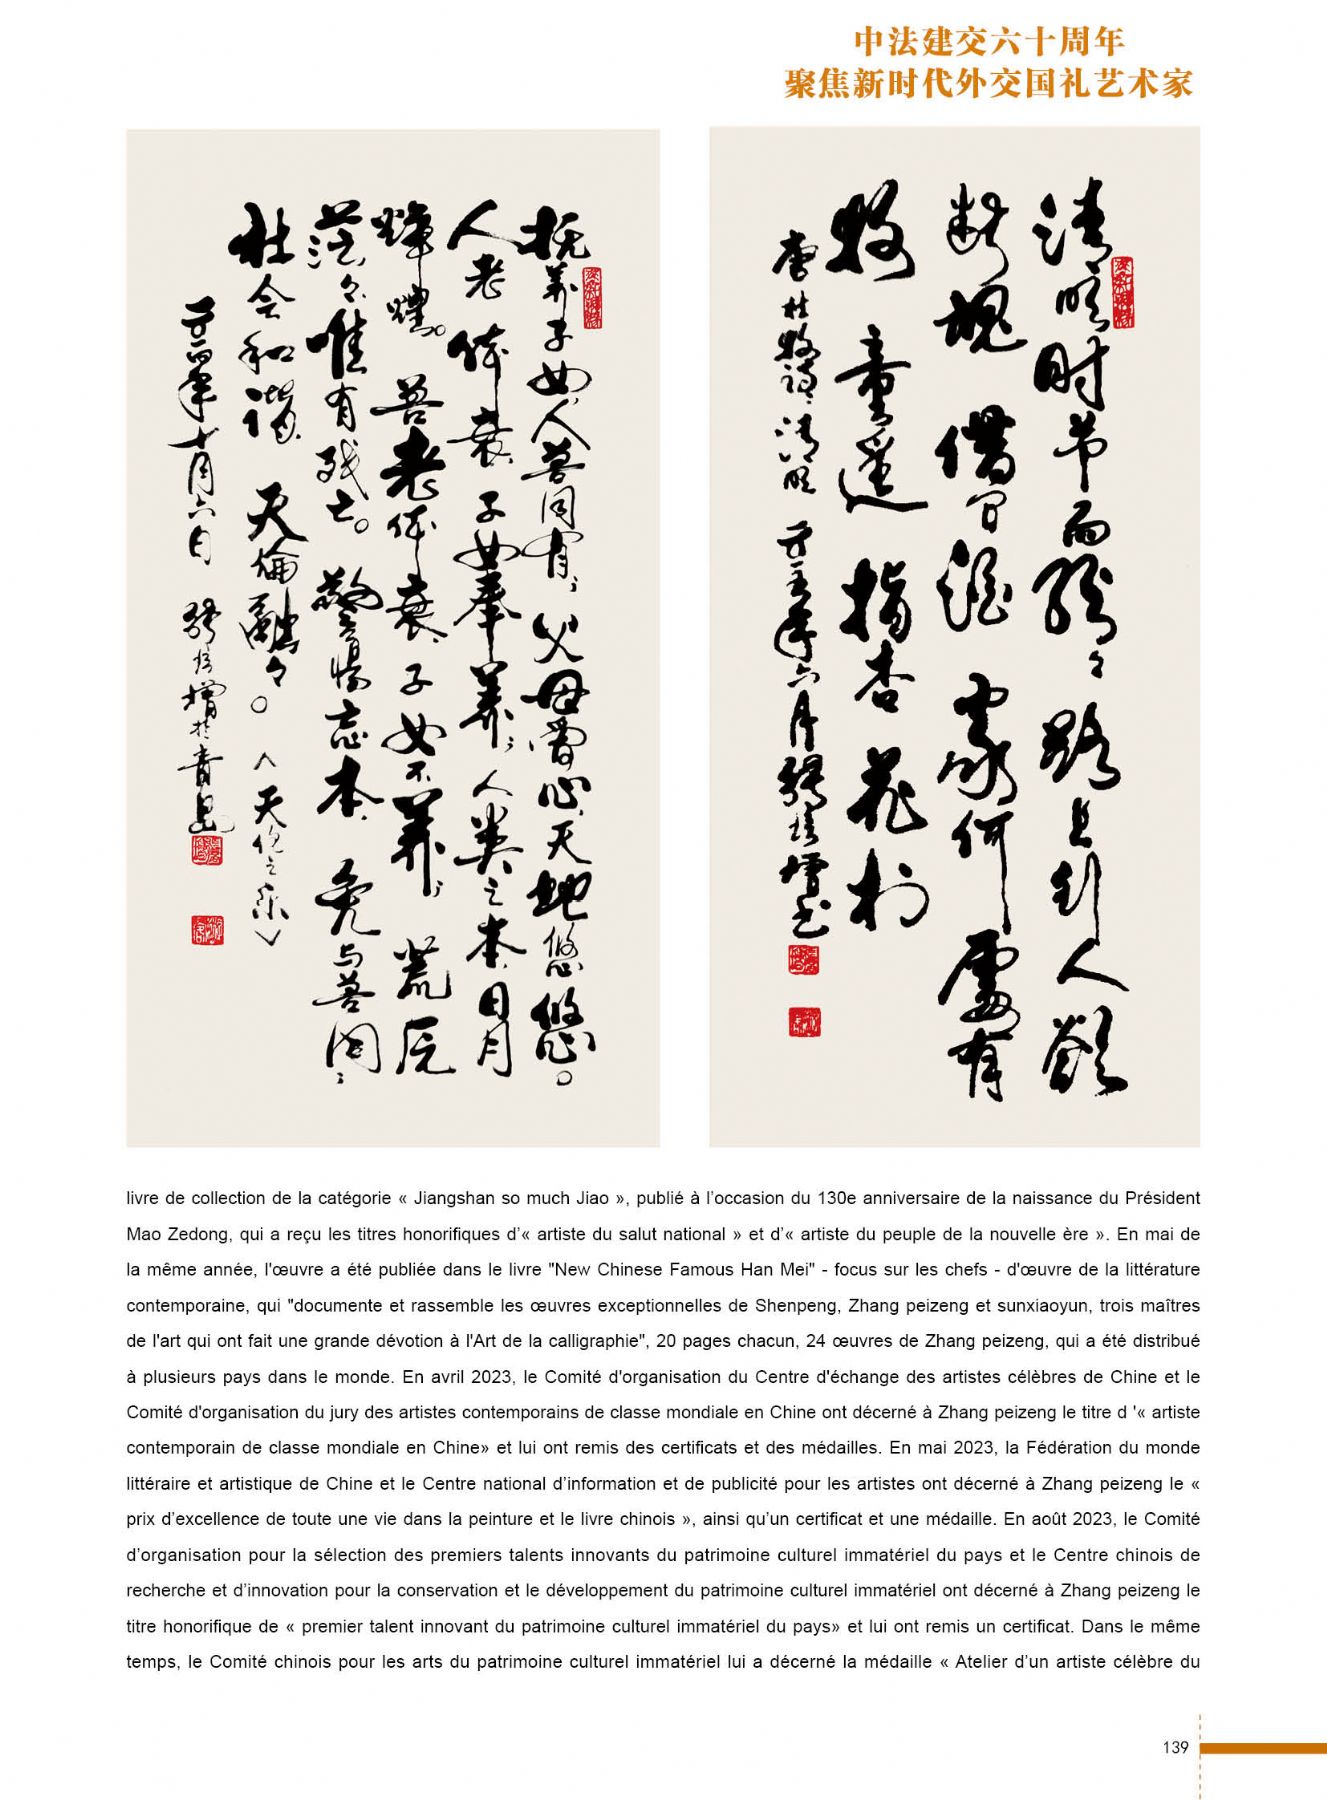 中法建交六十周年
聚焦新时代外交国礼艺术家
抚养子女，人兽同有，父母爱心，天地悠悠。
人老体衰，子女奉养，人类之本，日月
辉煌。兽老体衰，子女不养，荒原
茫々，唯有残亡。警惕忘本，免与兽同，
社会和谐，天伦融々。〈天伦之乐〉
二〇一四年十月六日 张培增於青岛
清明时节雨纷々路上行人欲
断魂借问酒家何處有
牧童遥指杏花村
唐杜牧诗清明 年六月张培增书
livre de collection de la catégorie « Jiangshan so much Jiao », publié à l’occasion du 130e anniversaire de la naissance du Président
Mao Zedong, qui a reçu les titres honorifiques d’« artiste du salut national » et d’« artiste du peuple de la nouvelle ère ». En mai de
la même année, l'œuvre a été publiée dans le livre "New Chinese Famous Han Mei" - focus sur les chefs - d'œuvre de la littérature
contemporaine, qui "documente et rassemble les œuvres exceptionnelles de Shenpeng, Zhang peizeng et sunxiaoyun, trois maîtres
de l'art qui ont fait une grande dévotion à l'Art de la calligraphie", 20 pages chacun, 24 œuvres de Zhang peizeng, qui a été distribué
à plusieurs pays dans le monde. En avril 2023, le Comité d'organisation du Centre d'échange des artistes célèbres de Chine et le
Comité d'organisation du jury des artistes contemporains de classe mondiale en Chine ont décerné à Zhang peizeng le titre d '« artiste
contemporain de classe mondiale en Chine» et lui ont remis des certificats et des médailles. En mai 2023, la Fédération du monde
littéraire et artistique de Chine et le Centre national d’information et de publicité pour les artistes ont décerné à Zhang peizeng le «
prix d’excellence de toute une vie dans la peinture et le livre chinois », ainsi qu’un certificat et une médaille. En août 2023, le Comité
d’organisation pour la sélection des premiers talents innovants du patrimoine culturel immatériel du pays et le Centre chinois de
recherche et d’innovation pour la conservation et le développement du patrimoine culturel immatériel ont décerné à Zhang peizeng le
titre honorifique de « premier talent innovant du patrimoine culturel immatériel du pays» et lui ont remis un certificat. Dans le même
temps, le Comité chinois pour les arts du patrimoine culturel immatériel lui a décerné la médaille « Atelier d’un artiste célèbre du
139